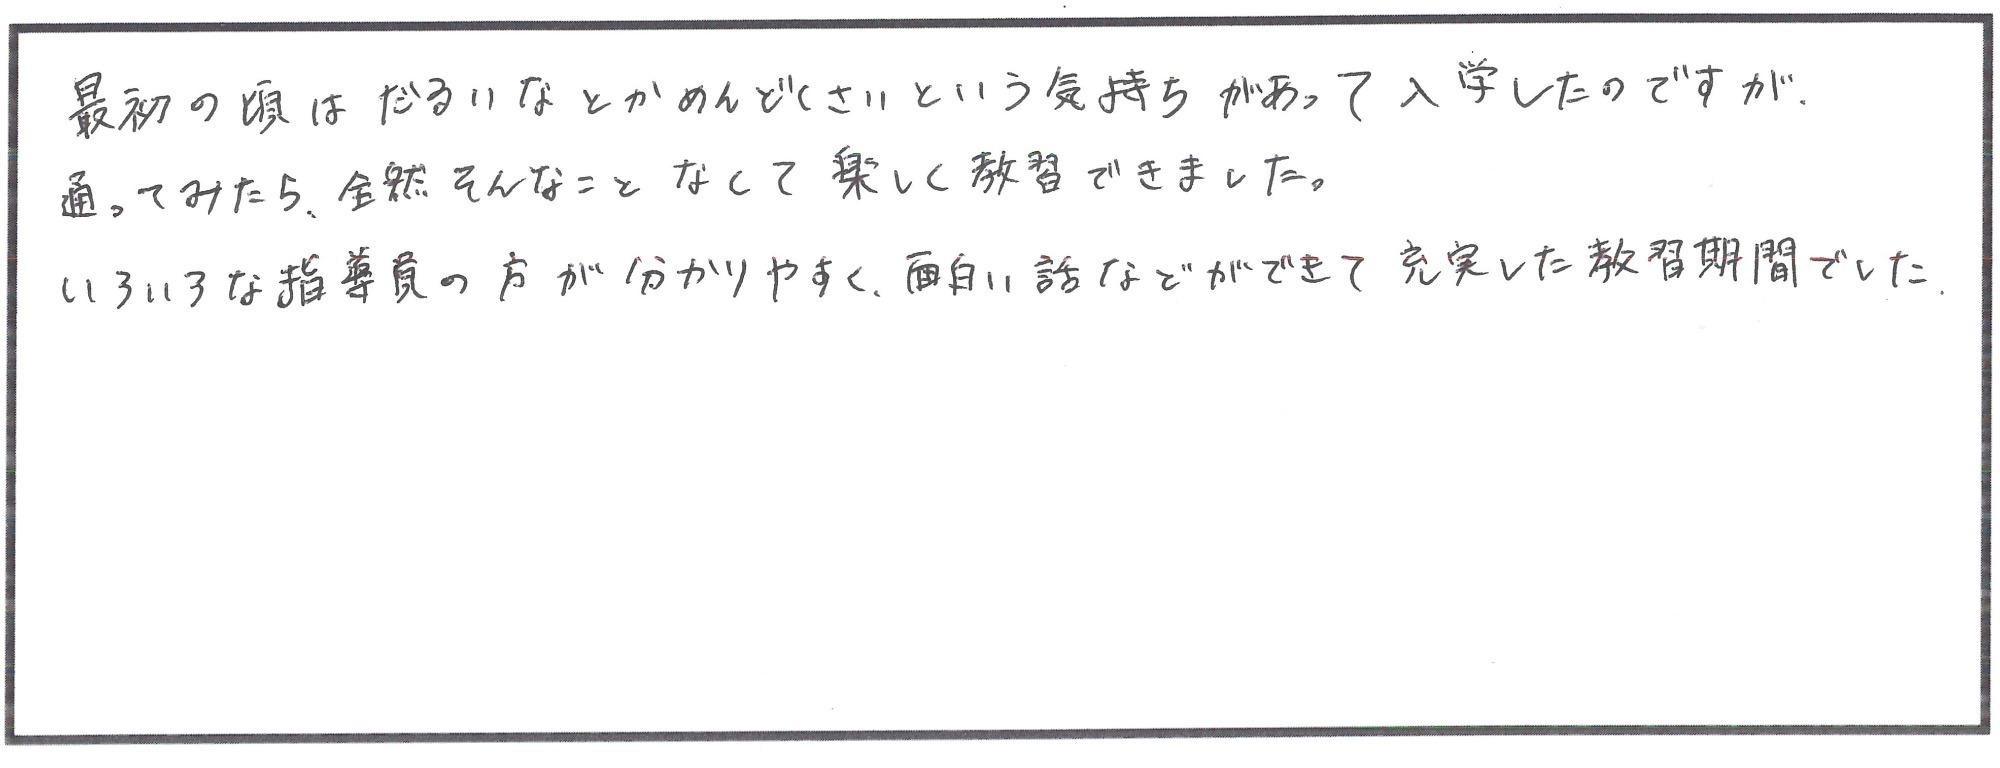 最初の頃はだるいなとかめんどくさいという気持ちがあって入学したのですが、
通ってみたら、全然そんなことなくて楽しく教習できました。
いろいろな指導員の方が分かりやすく、面白い話などができて充実した教習期間でした。